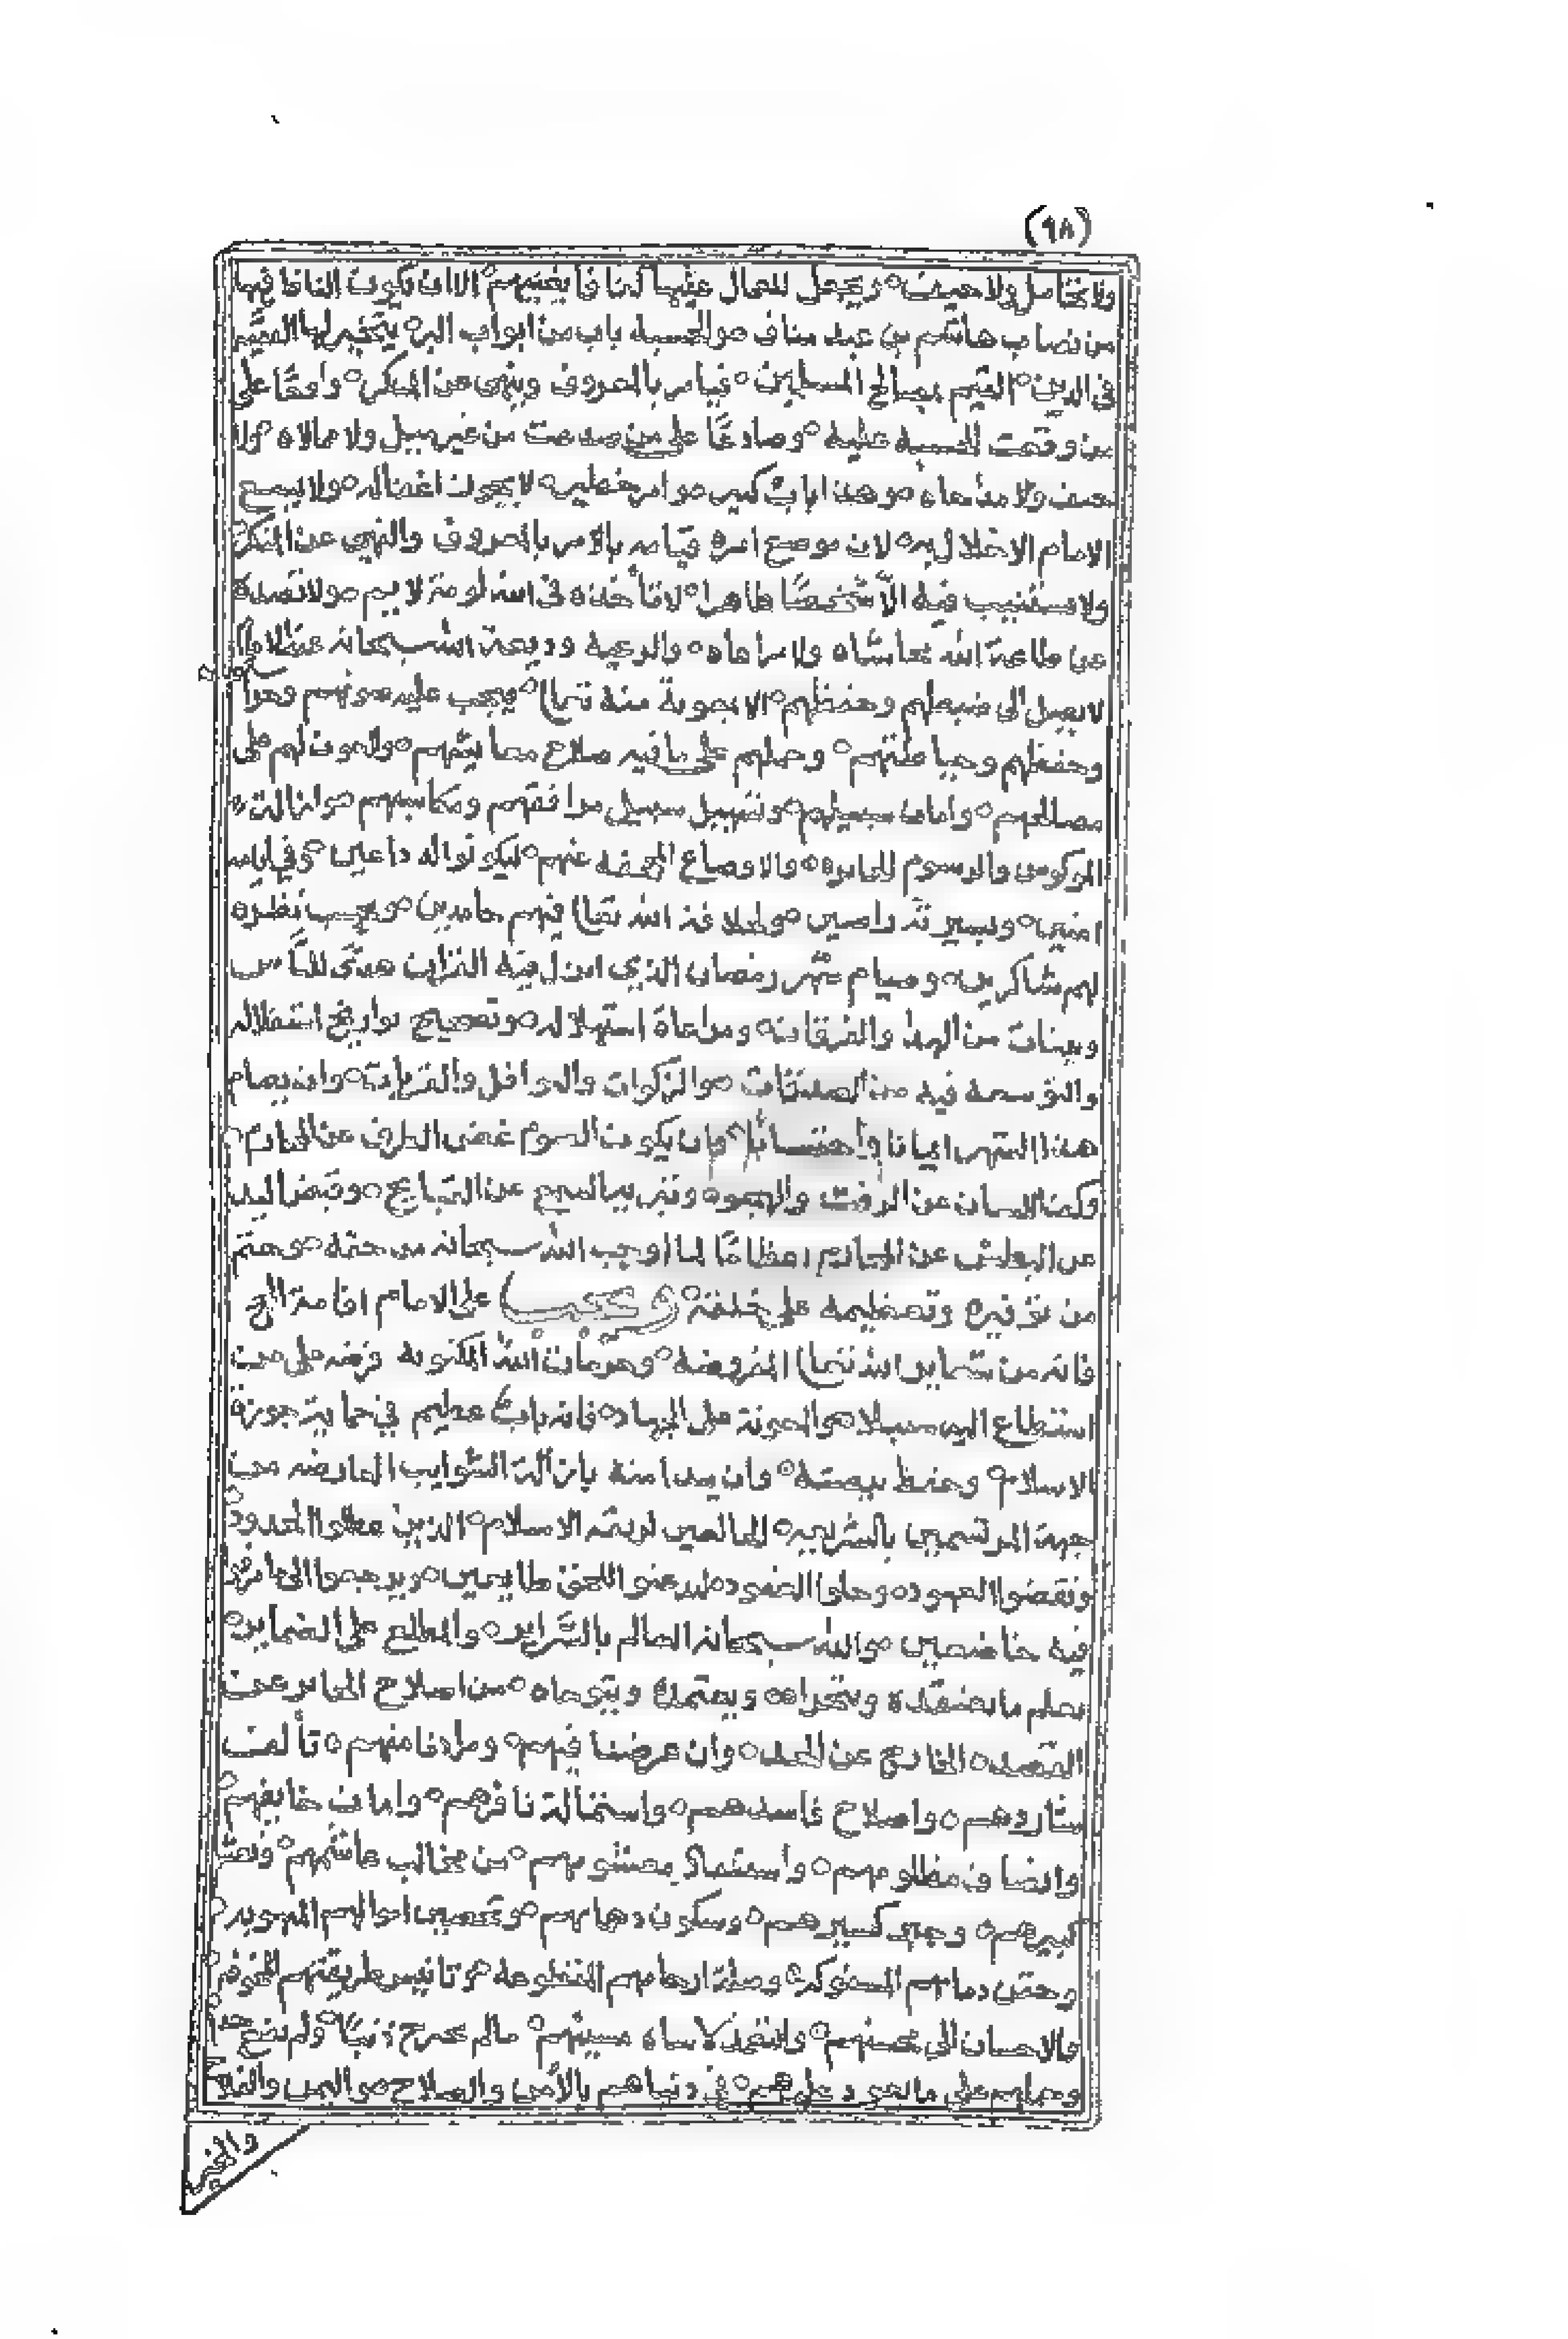 (٩٨)
ولا تحامل ولا حيف ويجعل للعمال عليها كفافا يغنيهم الا ان يكون فيها
من نصاب هاشم بن عبد مناف والحسبة باب من ابواب البر يتخير لها القيم
في الدين القيم بمصالح المسلمين فيامر بالمعروف وينهى عن المنكر على
من وقعت الحسبة عليه وصادعا على من صدعت من غير ميل ولا ممالاه ولا
ولا مداهاه وهذا باب كبير وامر خطير لا يجوز اغفاله ولا يسع
الامام الاخلال به لان موضع امره وقيامه بالامر بالمعروف والنهي عن المنكر
ولا يستنيب فيه الا شخصا طاهرا لا تأخذه في الله لومة لايم ولا تصده
عن طاعة الله محاشاه ولا مراعاه والرعية وديعة الله سبحانه عند الامام
لا يصل الى ضبطهم وحفظهم الا بمعونة منه تعالى ويجب عليه صونهم
وحفظهم وحياطتهم وحملهم على ما فيه صلاح معايشهم والعون لهم على
مصالحهم وامان سبيلهم وتسهيل سبيل مرافقهم ومكاسبهم وازالة
المكوس والرسوم الجايرة والاوضاع المجحفة عنهم ليكونوا له داعين وفي
امنين وبسيرته راضين ولخلافة الله تعالى فيهم حامدين ويجب نظره
لهم شاكرين وصيام شهر رمضان الذي انزل فيه القران هدى للناس
وبينات من الهدا والفرقان ومراعاة استهلاله وتصحيح تواريخ استقلاله
والتوسعة فيه من الصدقات والزكوات والنوافل والقربات وان يصام
هذا الشهر ايمانا واحتسابا وان يكون الصوم غض الطرف عن المحارم
وكف اللسان عن الرفث والهجوه وتنزيه السمع عن القبايح وقبض اليد
عن البطش عن المحارم اعظاما لما اوجب الله سبحانه من حقه وحتم
من توقيره وتعظيمه على خلقه ويجب على الامام اقامة الحج
فانه من شعاير الله تعالى المفروضة وحرمات الله المكتوبة وفرضه على من
استطاع اليه سبيلا والمعونة على الجهاد فانه باب عظيم في حماية حوزة
الاسلام وحفظ بيضته وان يبدا منه بازالة الشوايب العارضه من
جهة المرتسمين بالشريعه الخالعين لربقة الاسلام الذين عطلوا الحدود
ونقضوا العهوده وحلوا العقود طايعين ويرجعوا الى
فيه خاضعين والله سبحانه العالم بالسراير والمطلع على الضماير
يعلم ما نعتقده ونتحراه ونعتمده ونتوخاه من اصلاح الجاير عن
القصد الخارج عن الحد وان غرضنا فيهم ومرادنا منهم تألف
شاردهم واصلاح فاسدهم واستمالة نافرهم وامان خايفهم
وانصاف مظلومهم من مخالب غاشمهم
كبيرهم وجبر كسيرهم وسكون دهمايهم وتحصين اموالهم
وحقن دمايهم المسفوكه وصلة ارحامهم المقطوعة وتانيس طريقهم المخوفه
والاحسان الى محسنهم والتغمد لاساه مسيئهم مالم يجرح دينا ولم يضع حدا
وحملهم على ما يعود عليهم في دنياهم بالأمن والصلاح واليمن والفلاح
والخير